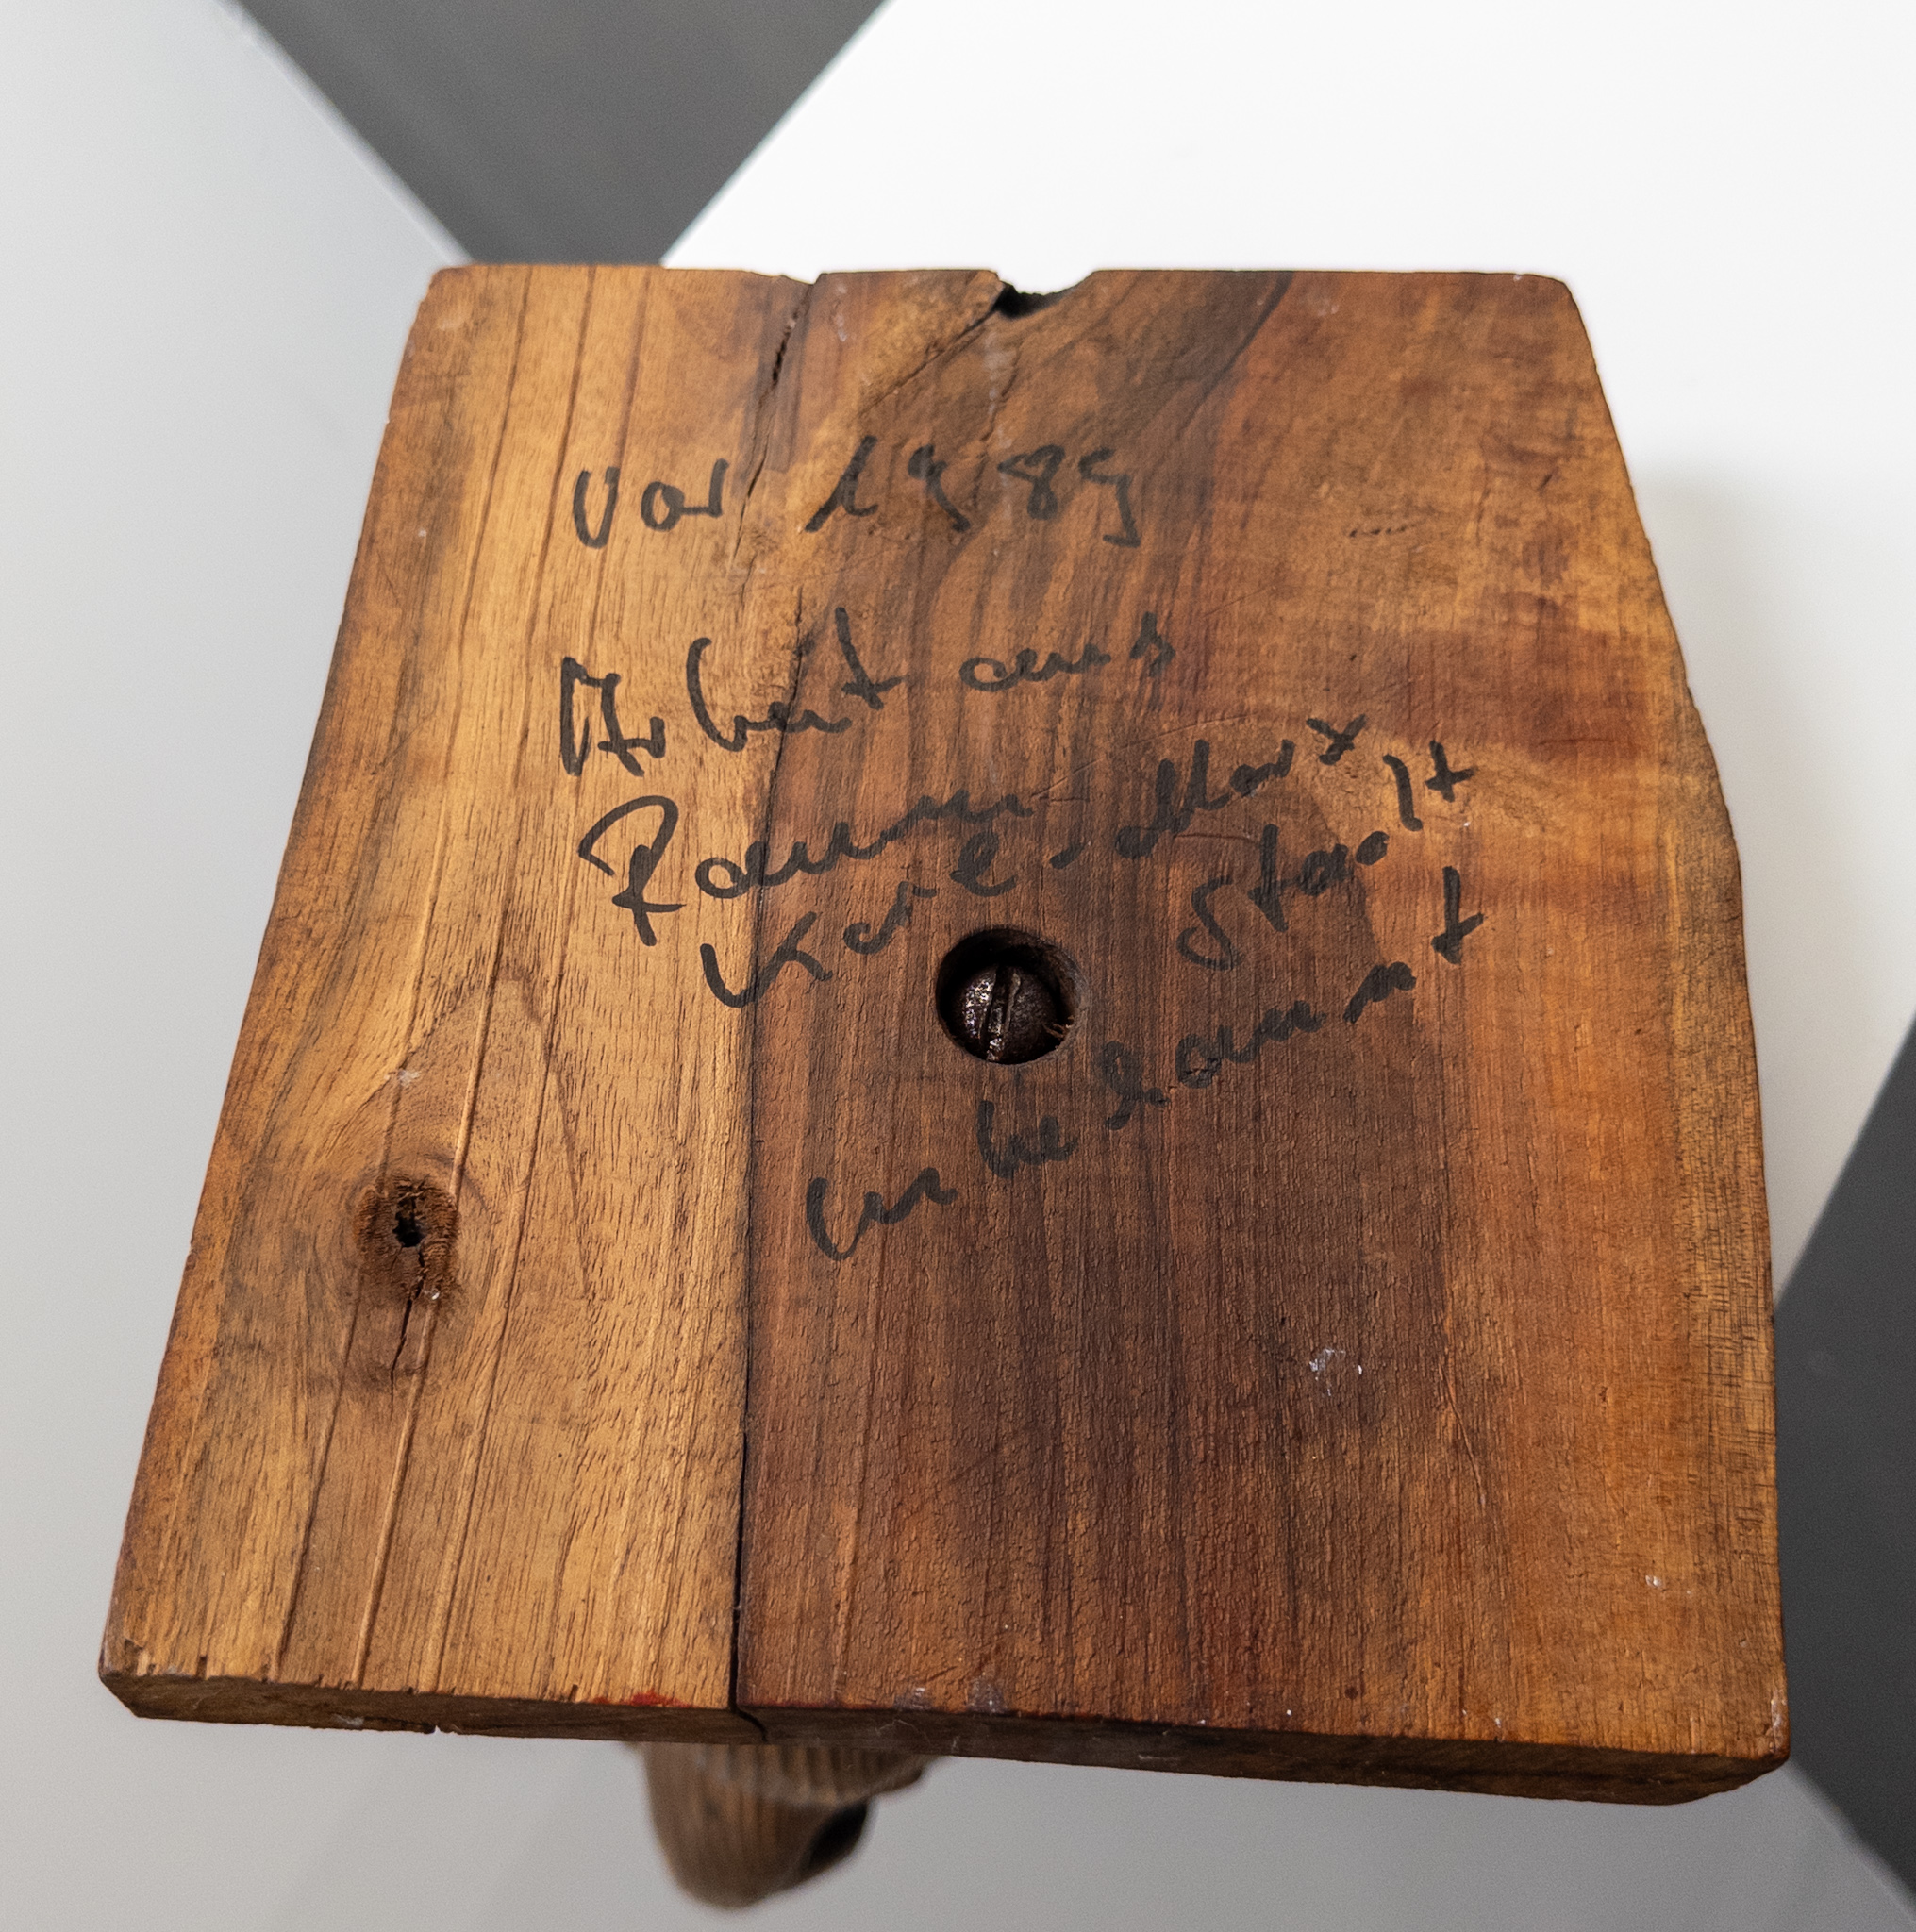 vor 1989
Arbeit aus
Raum
Karl-Marx
Stadt
unbekannt